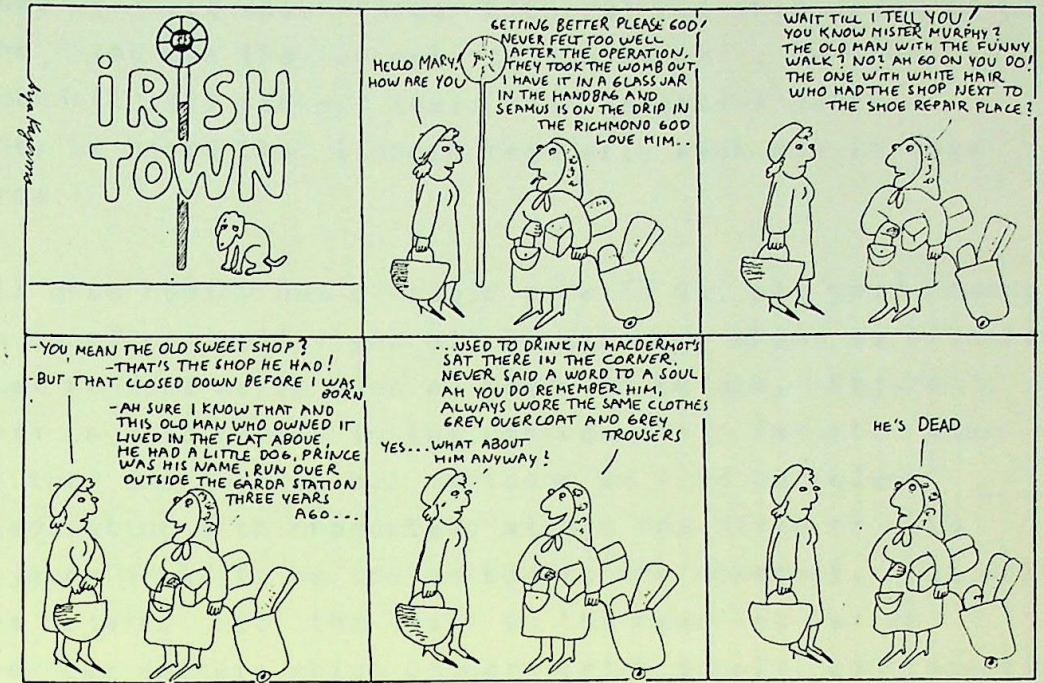 iRiSH
TOWN
HELLO MARY!
HOW ARE YOU
GETTING BETTER PLEASE GOD!
NEVER FELT TOO WELL
AFTER THE OPERATION.
THEY TOOK THE WOMB OUT,
I HAVE IT IN A GLASS JAR
IN THE HANDBAG AND
SEAMUS IS ON THE DRIP IN
THE RICHMOND GOD
LOVE HIM..
WAIT TILL I TELL YOU!
YOU KNOW MISTER MURPHY?
THE OLD MAN WITH THE FUNNY
WALK? NO? AH GO ON YOU DO!
THE ONE WITH WHITE HAIR
WHO HAD THE SHOP NEXT TO
THE SHOE REPAIR PLACE?
-YOU MEAN THE OLD SWEET SHOP?
-THAT'S THE SHOP HE HAD!
-BUT THAT CLOSED DOWN BEFORE I WAS
BORN
-AH SURE I KNOW THAT AND
THIS OLD MAN WHO OWNED IT
LIVED IN THE FLAT ABOVE,
HE HAD A LITTLE DOG, PRINCE
WAS HIS NAME, RUN OVER
OUTSIDE THE GARDA STATION
THREE YEARS
AGO...
...USED TO DRINK IN MACDERMOTS
SAT THERE IN THE CORNER.
NEVER SAID A WORD TO A SOUL
AH YOU DO REMEMBER HIM,
ALWAYS WORE THE SAME CLOTHES
GREY OVERCOAT AND GREY
TROUSERS
YES...WHAT ABOUT
HIM ANYWAY?
HE'S DEAD